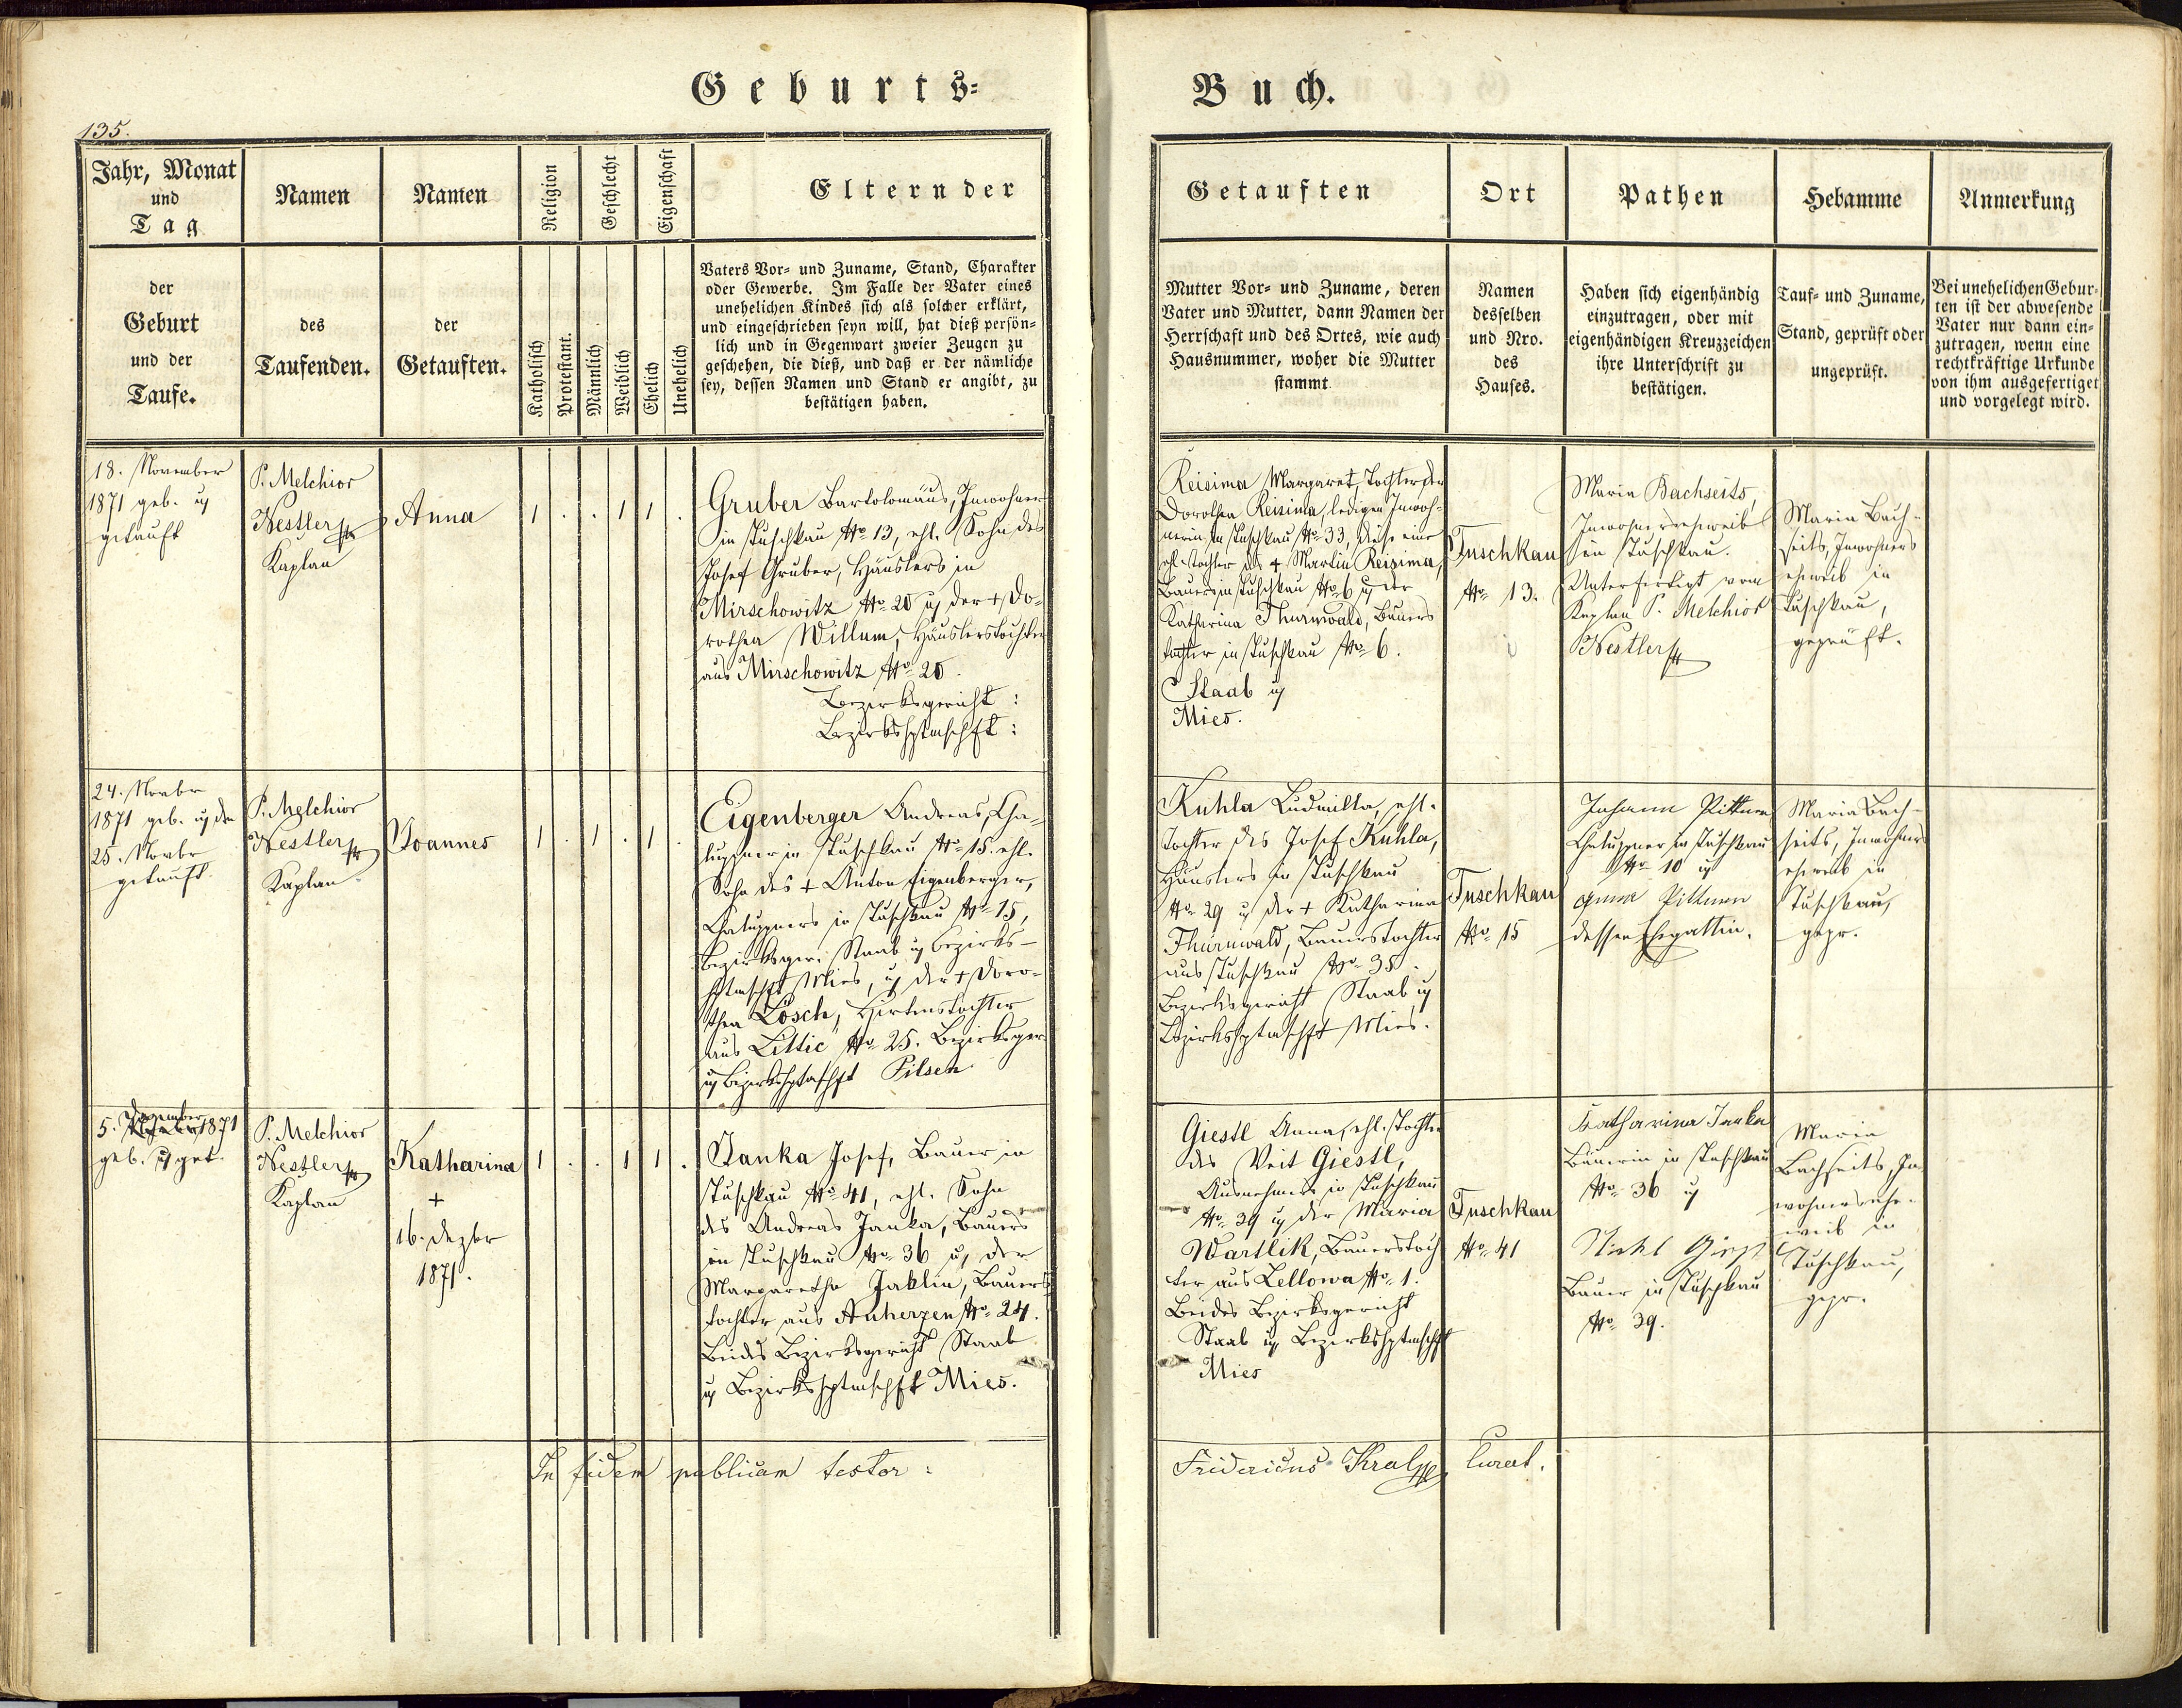 Geburts-
Buch.
135.
Jahr, Monat
und
Tag
Namen
Namen
Religion
Geschlecht
Eigenschaft
Eltern der
Getauften
Ort
Pathen
Hebamme
Anmerkung
der
Geburt
und der
Taufe.
des
Taufenden.
der
Getauften.
Katholisch
Protestant.
Männlich
Weiblich
Ehelich
Unehelich
Vaters Vor- und Zuname, Stand, Charakter
oder Gewerbe. Im Falle der Vater eines
unehelichen Kindes sich als solcher erklärt,
und eingeschrieben seyn will, hat dieß persön-
lich und in Gegenwart zweier Zeugen zu
geschehen, die dieß, und daß er der nämliche
sey, dessen Namen und Stand er angibt, zu
bestätigen haben.
Mutter Vor- und Zuname, deren
Vater und Mutter, dann Namen der
Herrschaft und des Ortes, wie auch
Hausnummer, woher die Mutter
stammt.
Namen
desselben
und Nro.
des
Hauses.
Haben sich eigenhändig
einzutragen, oder mit
eigenhändigen Kreuzzeichen
ihre Unterschrift zu
bestätigen.
Tauf- und Zuname,
Stand, geprüft oder
ungeprüft.
Bei unehelichen Gebur-
ten ist der abwesende
Vater nur dann ein-
zutragen, wenn eine
rechtkräftige Urkunde
von ihm ausgefertiget
und vorgelegt wird.
18. November
1871 geb. u
getauft
P. Melchior
Nestler
Kaplan
Anna
1 . . 1 1 .
Gruber Bartolomäus, Inwohner
in Tuschkau No 13, ehl. Sohn des
Josef Gruber, Häuslers in
Mirschowitz No 20 u der + Do-
rothea Willum, Häuslerstochter
aus Mirschowitz No 20.
Bezirksgericht :
Bezirkshptmschft :
Reisima Margaret, Tochter der
Dorothea Reisima, ledigen Inwoh-
nerin in Tuschkau No 33, diese eine
ehl. Tochter des + Martin Reisima,
Bauers in Tuschkau No 6 u der
Katharina Thurnwald, Bauers
tochter in Tuschkau No 6.
Staab u
Mies.
Tuschkau
No 13.
Maria Bachseits,
Inwohnersehweib
in Tuschkau.
Unterfertigt vom
Kaplan P. Melchior
Nestler
Maria Bach-
seits, Inwohners
ehweib in
Tuschkau,
geprüft.
24. Novbr
1871 geb. u den
25. Novbr
getauft.
P. Melchior
Nestler
Kaplan
Joannes
1 . 1 . 1 .
Eigenberger Andreas, Cha-
luppner in Tuschkau No 15. ehl.
Sohn des + Anton Eigenberger,
Chaluppners in Tuschkau No 15,
Bezirksger. Staab u Bezirks-
hptmschft Mies, u der + Doro-
thea Lösch, Hirtenstochter
aus Littic No 25. Bezirksger.
u Bezirkshptmschft Pilsen
Kuhla Ludmilla, ehl.
Tochter des Josef Kuhla,
Häuslers in Tuschkau
No 29 u der + Katharina
Thurnwald, Bauerstochter
aus Tuschkau No 35.
Bezirksgericht Staab u
Bezirkshptmschft Mies.
Tuschkau
No 15
Johann Pittner
Chaluppner in Tuschkau
No 10 u
Anna Pittner
dessen Ehegattin.
Maria Bach-
seits, Inwohners
ehweib in
Tuschkau,
gepr.
5. Dezember 1871
geb. u get.
P. Melchior
Nestler
Kaplan
Katharina
+
16. Dezbr
1871.
1 . . 1 1 .
Janka Josef, Bauer in
Tuschkau No 41, ehl. Sohn
des Andreas Janka, Bauers
in Tuschkau No 36 u der
Margaretha Jaklin, Bauers
tochter aus Anherzen No 24.
Beides Bezirksgericht Staab
u Bezirkshptmschft Mies.
Giestl Anna, ehl. Tochter
des Veit Giestl,
Ausnehmers in Tuschkau
No 39 u der Maria
Wartlik, Bauerstoch
ter aus Lellowa No 1.
Beides Bezirksgericht
Staab u Bezirkshptmschft
Mies
Tuschkau
No 41
Katharina Janka
Bäuerin in Tuschkau
No 36 u
Bauer in Tuschkau
No 39.
Maria
Bachseits, In
wohnersehe-
weib in
Tuschkau,
gepr.
In fidem publicam testor :
Fridericus Kral Curat.